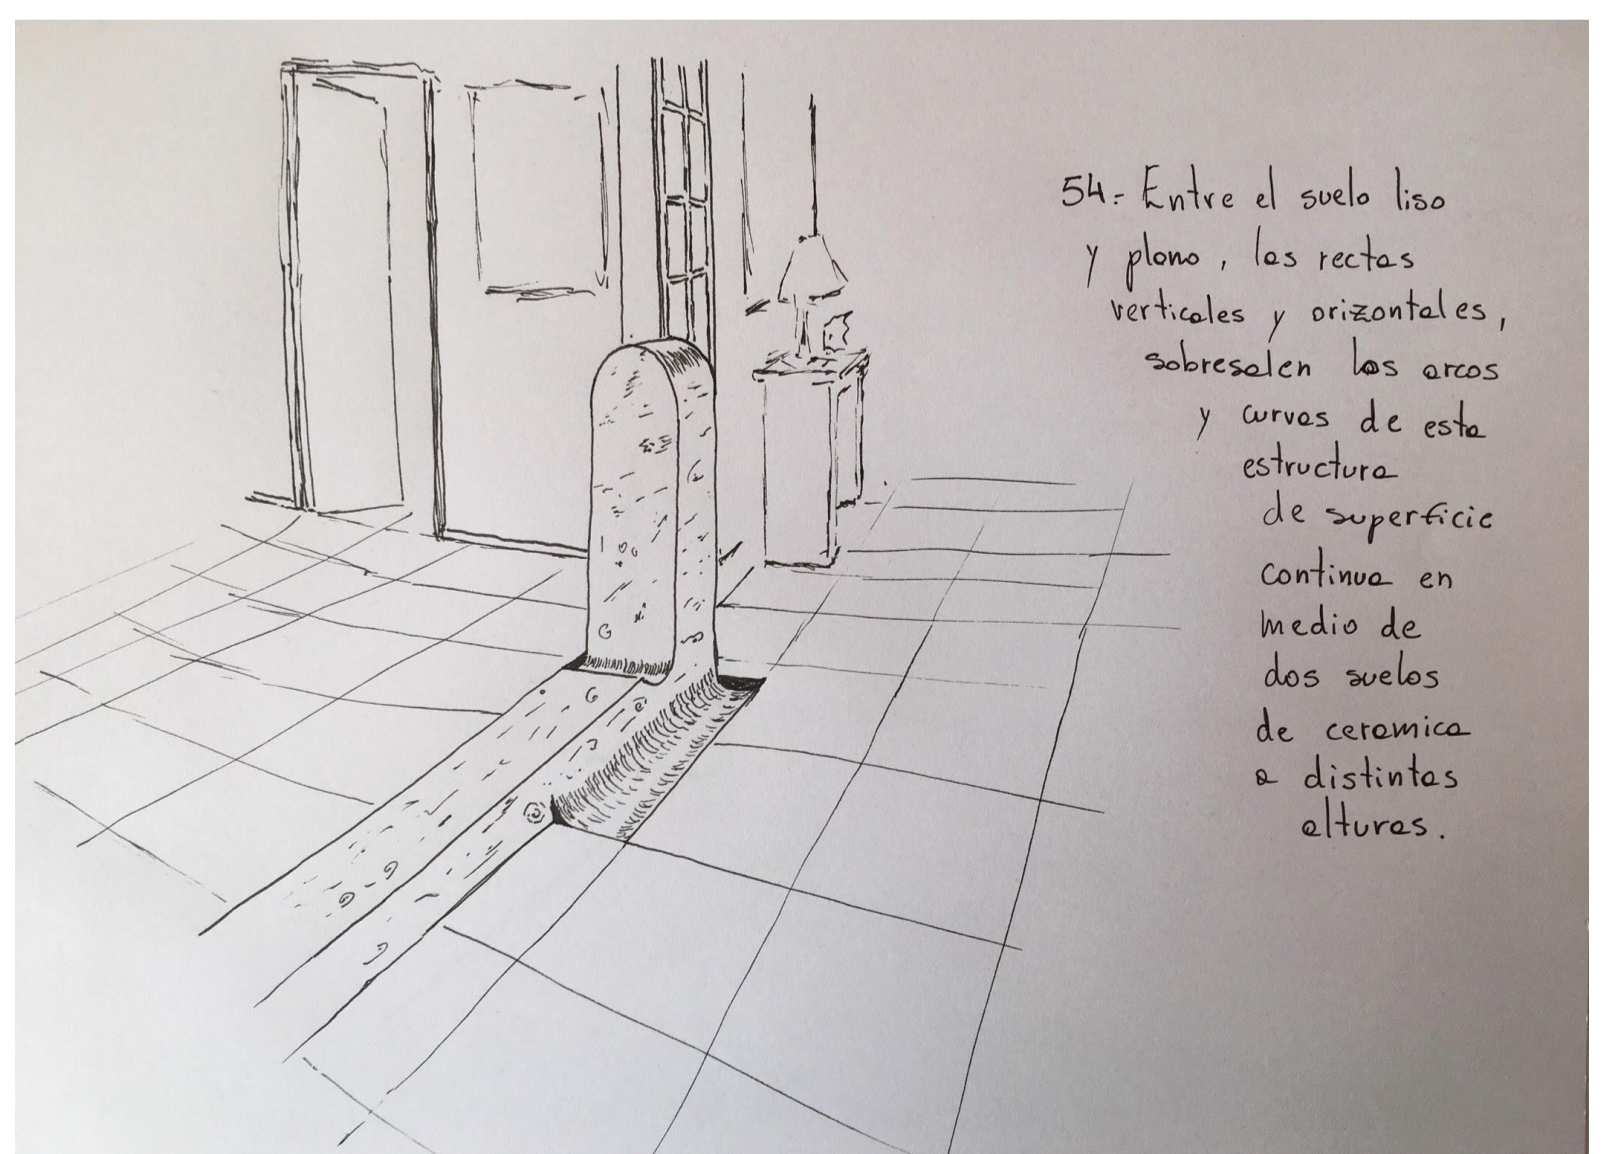 54.- Entre el suelo liso
y plano, las rectas
verticales y orizontales,
sobresalen los arcos
y curvas de esta
estructura
de superficie
continua en
medio de
dos suelos
de ceramica
a distintas
alturas.